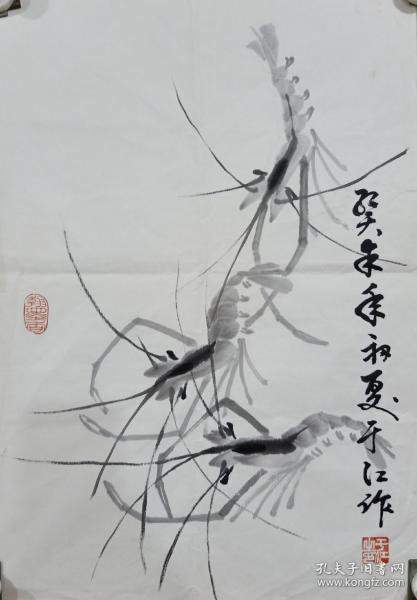 癸未年初夏于江作
孔夫子旧书网
www.kongfz.com